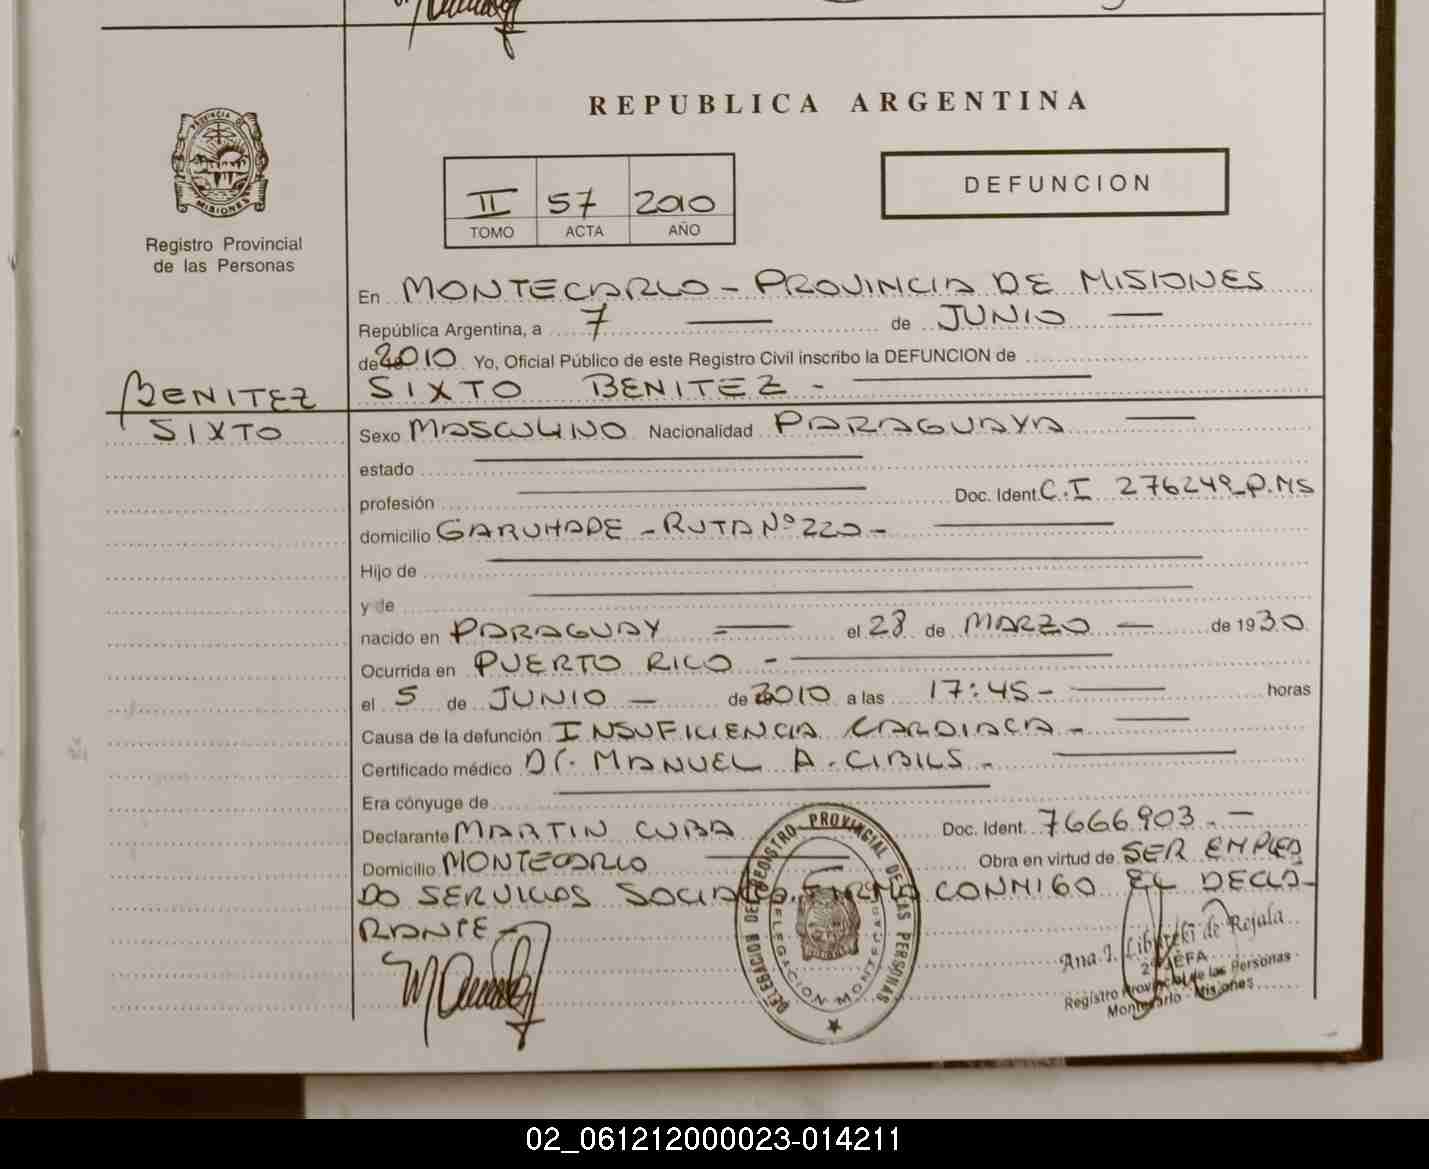 REPUBLICA ARGENTINA
PROVINCIA DE
MISIONES
II 57 2010
TOMO ACTA AÑO
DEFUNCION
Registro Provincial
de las Personas
En MONTECARLO - PROVINCIA DE MISIONES
República Argentina, a 7 de JUNIO
de 2010 Yo, Oficial Público de este Registro Civil inscribo la DEFUNCION de
BENITEZ SIXTO BENITEZ -
SIXTO Sexo MASCULINO Nacionalidad PARAGUAYA
estado
profesión Doc. Ident. C.I 276249-P.MS
domicilio GARUHAPE - RUTA Nº 220 -
Hijo de
y de
nacido en PARAGUAY el 28 de MARZO de 1930
Ocurrida en PUERTO RICO -
el 5 de JUNIO de 2010 a las 17:45 - horas
Causa de la defunción INSUFICIENCIA CARDIACA -
Certificado médico Dr. MANUEL A. CIBILS -
Era cónyuge de
Declarante MARTIN CUBA Doc. Ident. 7666903. -
Domicilio MONTECARLO Obra en virtud de SER EMPLEA
DO SERVICIOS SOCIALES. FIRMA CONMIGO EL DECLA-
RANTE -
DELEGACION DEL REGISTRO PROVINCIAL DE LAS PERSONAS
DELEGACION MONTECARLO
Ana I. de Rejala
2º JEFA
Registro Provincial de las Personas
Montecarlo - Misiones
02_061212000023-014211